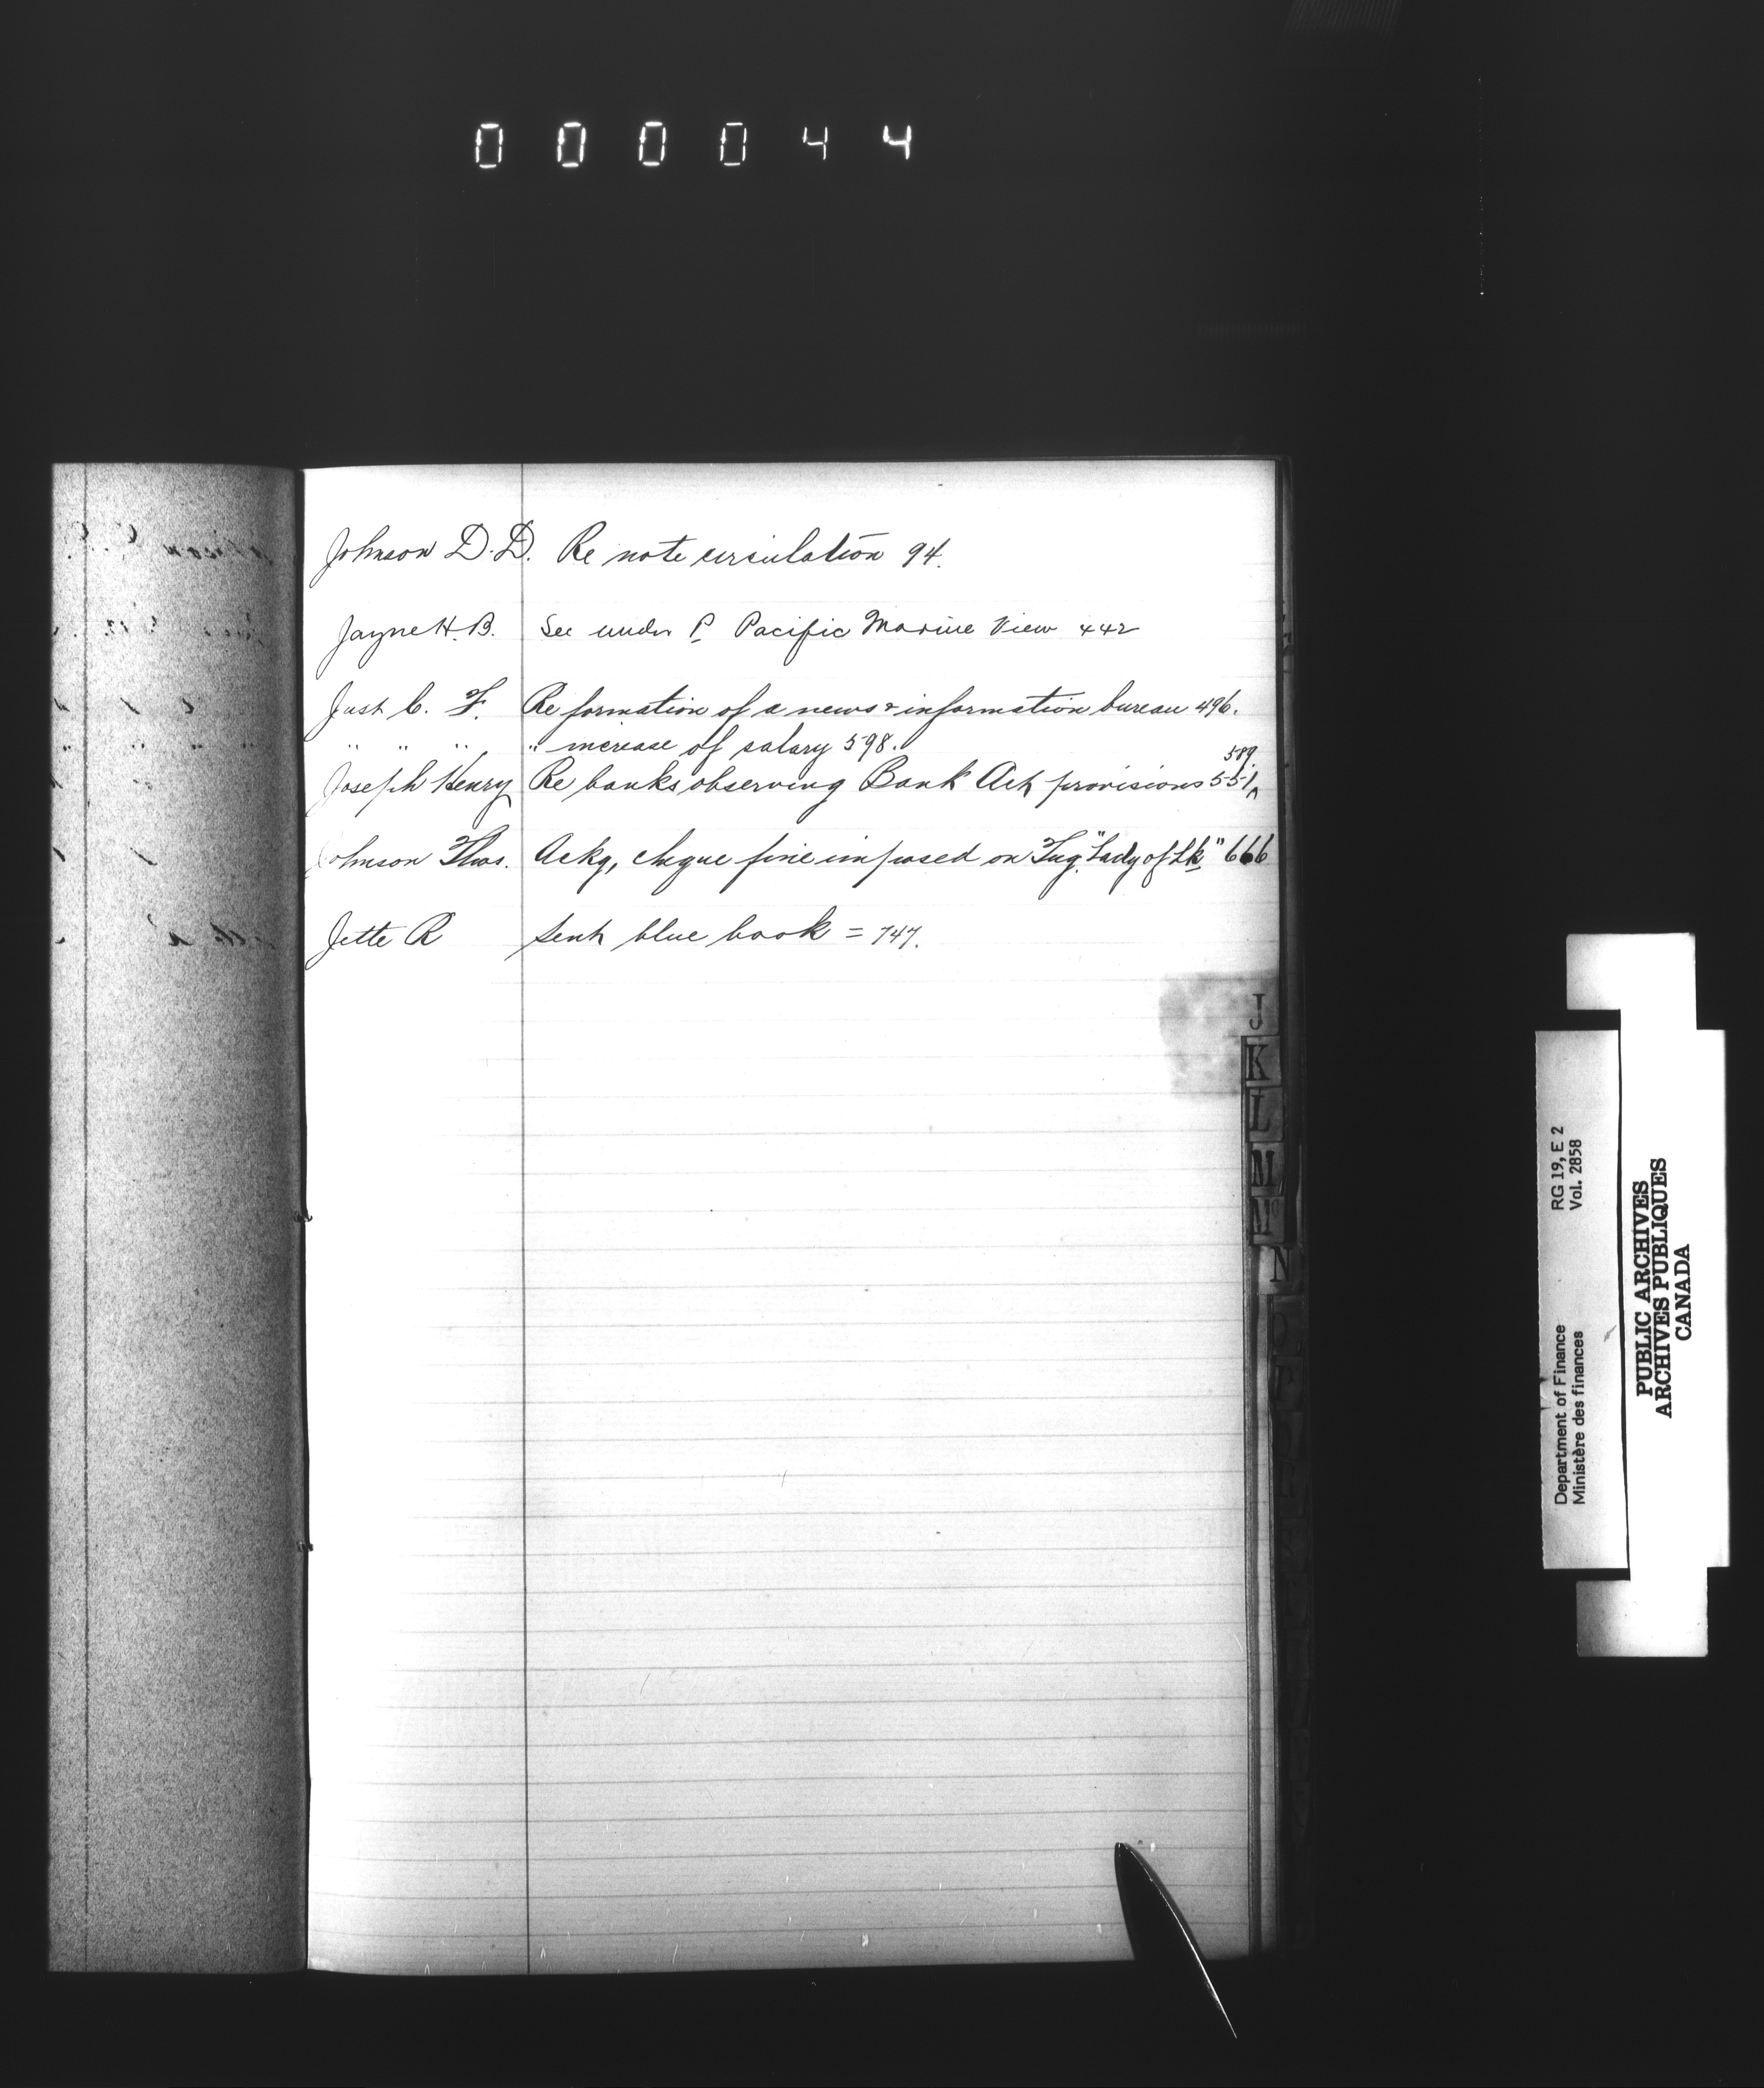 000044
Johnson D. D. Re note circulation 94.
Jayne H. B. See under P. Pacific Marine View 442
Just C. F. Re formation of a news & information bureau 496.
" " " " increase of salary 598.
589.
Joseph Henry Re banks observing Bank Act provisions 551
Johnson Thos. Ackg, cheque fine imposed on Tug. "Lady of Lk" 666
Jette R Sent blue book = 747.
J
K
L
M
Mc
N
RG 19, E 2
Vol. 2858
Department of Finance
Ministère des finances
PUBLIC ARCHIVES
ARCHIVES PUBLIQUES
CANADA